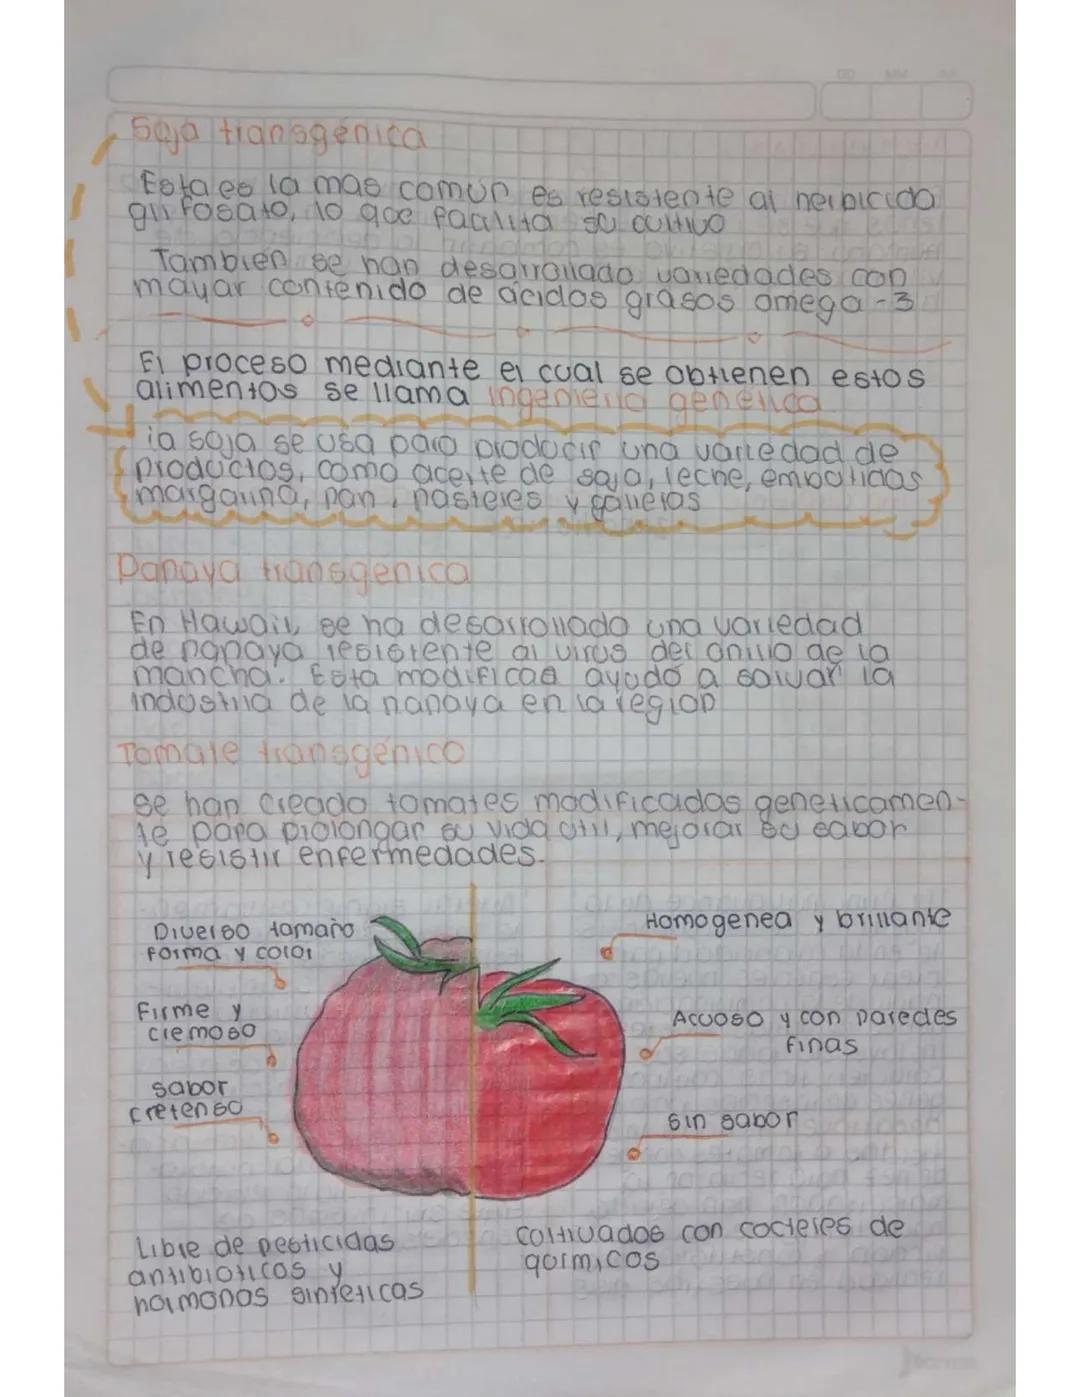 Soja transgénica
Esta es la mas común es resistente al herbicida
glifosato, lo que facilita su cultivo
Tambien se han desarrollado variedades con
mayar contenido de ácidos grasos omega-3
El proceso mediante el cual se obtienen estos
alimentos se llama ingenieria genética
la soja se usa para producir una variedad de
productos, como aceite de soja, leche, embotidas
margarina, pan, pasteles y galletas
Papaya transgenica
En Hawaii, se ha desarrollado una variedad
de papaya resistente al virus del anillo de la
mancha. Esta modificaa ayudó a salvar la
industria de la papaya en la región
Tomate transgénico
se han creado tomates modificadas geneticamen-
te para prolongar su vida útil, mejorar su sabor
y resistir enfermedades.
Diverso tamaño
forma y color
Homogenea y brillante
Firme y
cremoso
Acuoso y con paredes
finas
sabor
cretenso
sin sabor
Libre de pesticidas
antibióticos y
hormonas sintéticas
coltivados con cocteles de
qormicos
DD MM AA
Norma